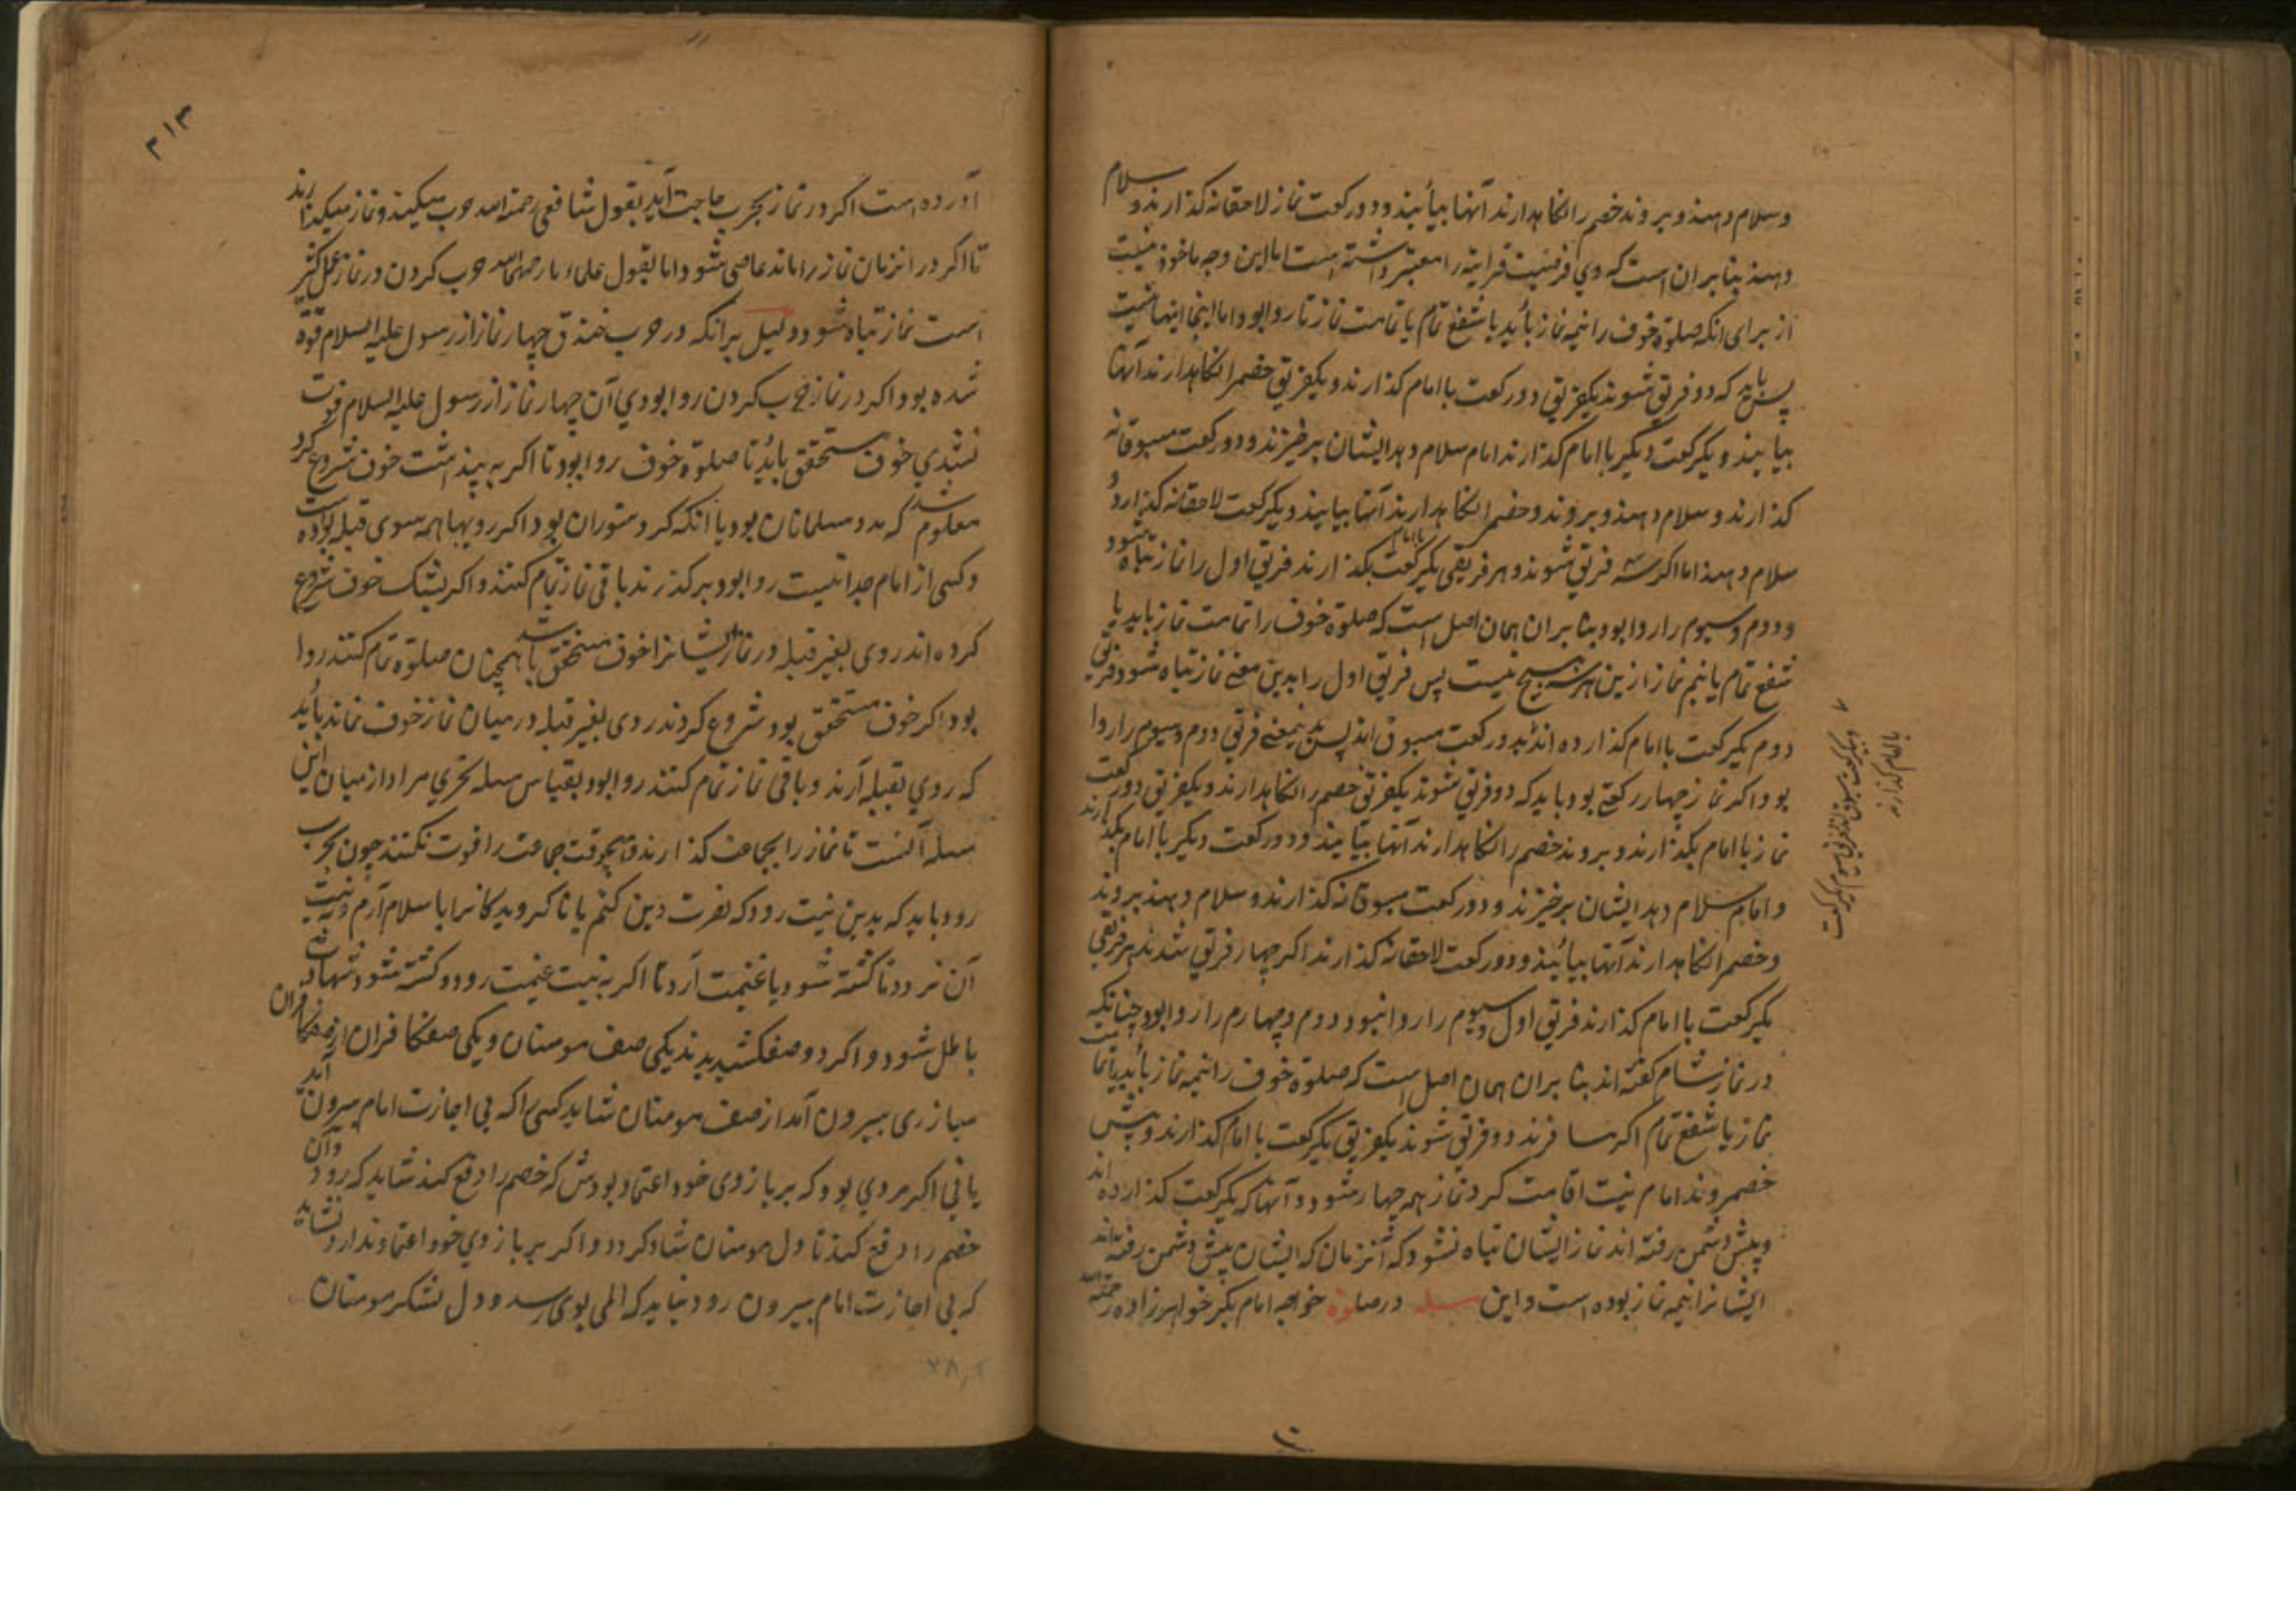 وسلام دهند و بروند خصم را نکاهدارند آنها بیأیند و دو رکعت نماز لاحقانه کذارند و سلام
دهند بنابران است که وی فرضیت قرایة را معتبر داشته است اما این وجه ماخوذ نیست
از برای انکه صلوة خوف را نیمه نماز بأید یا شفع تمام یا تمامت نماز تا روا بود اما اینجا اینها نیست
پس باید که دو فریق شوند یکفریق دو رکعت با امام کذارند و یکفریق خصم را نکاهدارند آنها
بیایند و یکرکعت دیکر با امام کذارند امام سلام دهد ایشان برخیزند و دو رکعت مسبوقانه
کذارند و سلام دهند و بروند و خصم را نکاهدارند آنها بیایند و یکرکعت لاحقانه کذارند و
سلام دهند اما اکر سه فریق شوند و هر فریقی یکرکعت با امام بکذارند فریق اول را نماز تباه شود
و دوم و سیوم را روا بود بنا بران همان اصل است که صلوة خوف را تمامت نماز باید یا
شفع تمام یا نیم نماز ازین هر سه هیچ نیست پس فریق اول را بدین معنی نماز تباه شود فریق
دوم یکرکعت با امام کذارده اند بدو رکعت مسبوق اند پس بدینمعنی فریق دوم و سیوم را روا
بود اکر نماز چهار رکعتی بود باید که دو فریق شوند یکفریق خصم را نکاهدارند و یکفریق دو رکعت
نماز با امام بکذارند و بروند خصم را نکاهدارند آنها بیایند و دو رکعت دیکر با امام بکذارند
و امام سلام دهد ایشان برخیزند و دو رکعت مسبوقانه کذارند و سلام دهند بروند
و خصم را نکاهدارند آنها بیأیند و دو رکعت لاحقانه کذارند اکر چهار فریق شدند هر فریقی
یکرکعت با امام کذارند فریق اول و سیوم را روا نبود و دوم و چهارم را روا بود چنانکه
در نماز شام کفته اند بنا بران همان اصل است که صلوة خوف را نیمه نماز بأید یا تمامت
نماز یا شفع تمام اکر مسافرند دو فریق شوند یکفریق یکرکعت با امام کذارند و پیش
خصم روند امام نیت اقامت کرد نماز همه چهار شود و آنها که یکرکعت کذارده اند
و پیش دشمن رفته اند نماز ایشان تباه نشود که آنزمان که ایشان پیش دشمن رفته اند
ایشانرا نیمه نماز بوده است و این مسله در صلوة خواجه امام بکر خواهرزاده رحمة الله
۳۱۳
آورده است اکر در نماز بحرب حاجت آید بقول شافعی رحمة الله حرب میکنند و نماز میکذارند
تا اکر در انزمان نماز را ماند عاصی شود اما بقول علماء ما رحمهم الله حرب کردن در نماز عمل کثیر
است نماز تباه شود و دلیل برانکه در حرب خندق چهار نماز از رسول علیه السلام فوة
شده بود اکر در نماز حرب کردن روا بودی آن چهار نماز از رسول علیه السلام فوت
نشدی خوف مستحقق بأید تا صلوة خوف روا بود تا اکر به پنداشت خوف شروع کرد
معلوم شد که مدد مسلمانان بود یا انکه کرد ستوران بود اکر رویها همه سوی قبله بوده است
و کسی از امام جدا نیست روا بود برکذرند باقی نماز تمام کنند و اکر بشک خوف شروع
کرده اند روی بغیر قبله در نماز ایشانرا خوف مستحقق شد باهمچنان صلوة تمام کنند روا
بود اکر خوف مستحقق بود شروع کردند روی بغیر قبله در میان نماز خوف نماند بأید
که روی بقبله آرند و باقی نماز تمام کنند روا بود بقیاس مسله تحری مراد از میان این
مسله آنست تا نماز را بجماعت کذارند و هیچوقت جماعت را فوت نکنند چون بحرب
رود باید که بدین نیت رود که نصرت دین کنم یا ناکرویدکانرا باسلام آرم و نه نیت
آن نرود تا کشته شود یا غنیمت آرد تا اکر به نیت غنیمت رود و کشته شود شهادت
باطل شود و اکر دو صف کشیدند یکی صف مومنان و یکی صف کافران از صف کافران
مبارزی بیرون آمد از صف مومنان شاید کسی را که بی اجازت امام بیرون آید
یا نی اکر مردی بود که بر بازوی خود اعتماد بودش که خصم را دفع کند شاید که رود و آن
خصم را دفع کند تا دل مومنان شاد کردد و اکر بر بازوی خود اعتماد ندارد نشاید
که بی اجازت امام بیرون رود نباید که المی بوی رسد و دل لشکر مومنان